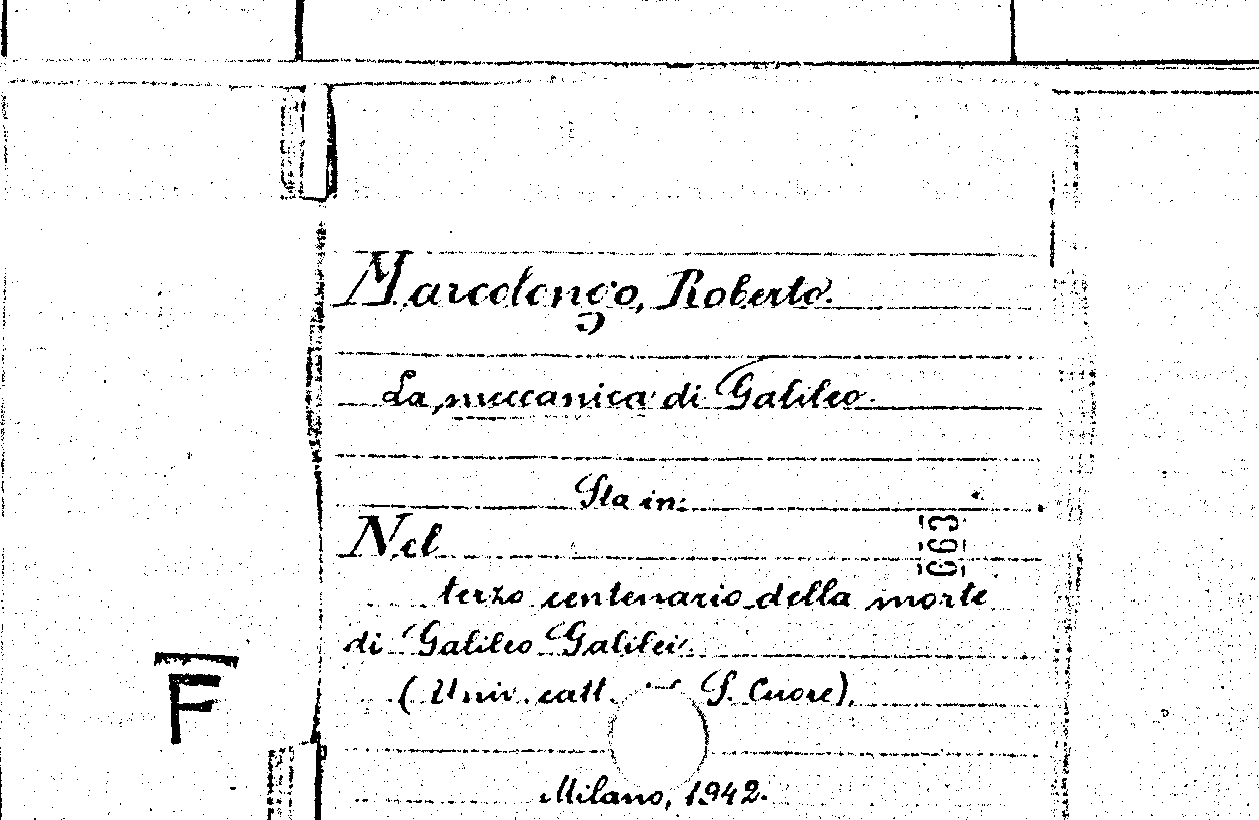 Marcolongo, Roberto.
La meccanica di Galileo.
Sta in:
663
Nel
terzo centenario della morte
di Galileo Galilei.
(Univ. catt. S. Cuore).
F
Milano, 1942.